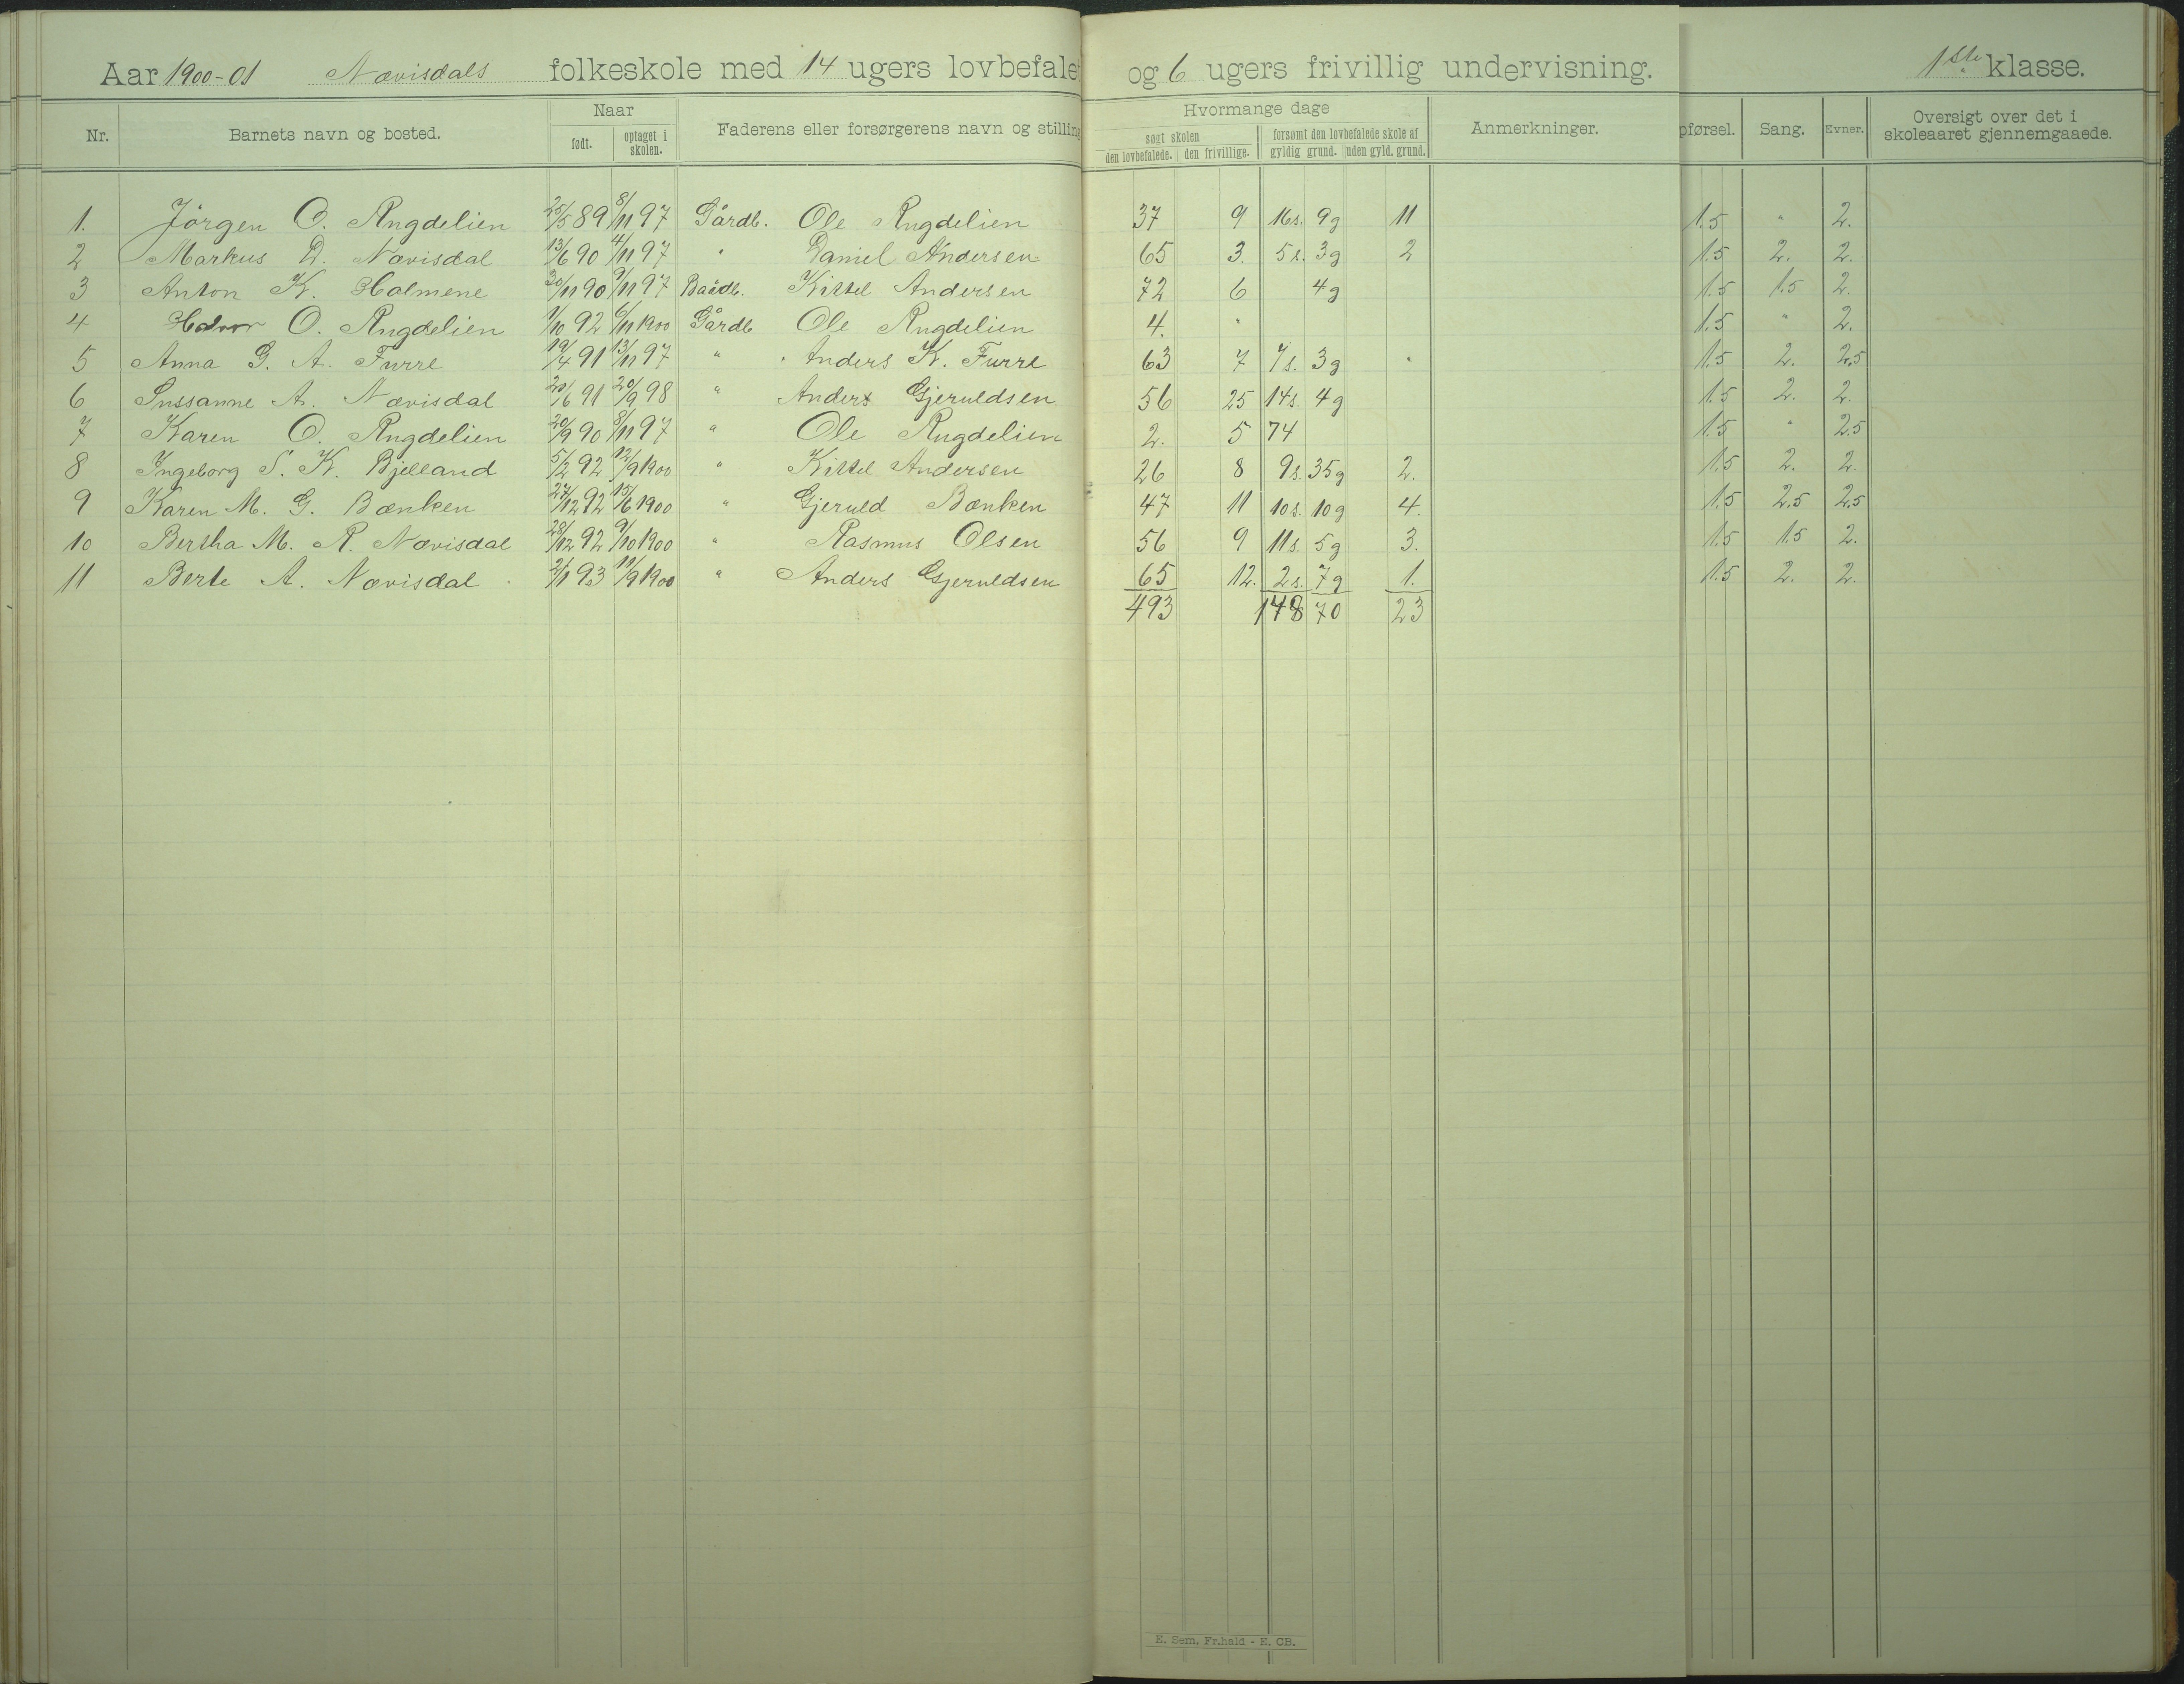 Aar 1900-01 Nævisdals folkeskole med 14 ugers lovbefale og 6 ugers frivillig undervisning. 1ste klasse.
Nr. Barnets navn og bosted. Naar født. optaget i skolen. Faderens eller forsørgerens navn og stilling Hvormange dage søgt skolen den lovbefalede. den frivillige. forsømt den lovbefalede skole af gyldig grund. uden gyld. grund. Anmerkninger. pførsel. Sang. Evner. Oversigt over det i skoleaaret gjennemgaaede.
1. Jörgen O. Rugdelien 25/5 89 8/11 97 Gårdb. Ole Rugdelien 37 9 16s. 9g 11 1.5 " 2.
2 Markus D. Nævisdal 13/6 90 4/11 97 " Daniel Andersen 65 3. 5s. 3g 2 1.5 2. 2.
3 Anton K. Holmene 30/11 90 9/11 97 Baadb. Kittel Andersen 72 6 4g 1.5 1.5 2.
4 Halvor O. Rugdelien 1/10 92 6/11 1900 Gårdb Ole Rugdelien 4. " 1.5 " 2.
5 Anna G. A. Furre 19/4 91 13/11 97 " Anders K. Furre 63 7 7s. 3g " 1.5 2. 2.5
6 Sussanne A. Nævisdal 20/6 91 20/9 98 " Anders Gjeruldsen 56 25 14s. 4g 1.5 2. 2.
7 Karen O. Rugdelien 20/9 90 8/11 97 " Ole Rugdelien 2. 5 74 1.5 " 2.5
8 Ingeborg S. K. Bjelland 5/2 92 12/9 1900 " Kittel Andersen 26 8 9s. 35g 2. 1.5 2. 2.
9 Karen M. G. Bænken 27/12 92 15/6 1900 " Gjeruld Bænken 47 11 10s. 10g 4. 1.5 2.5 2.5
10 Bertha M. R. Nævisdal 28/12 92 9/10 1900 " Rasmus Olsen 56 9 11s. 5g 3. 1.5 1.5 2.
11 Berte A. Nævisdal 2/1 93 11/9 1900 " Anders Gjeruldsen 65 12. 2s. 7g 1. 1.5 2. 2.
493 148 70 23
E. Sem, Fr.hald - E. CB.